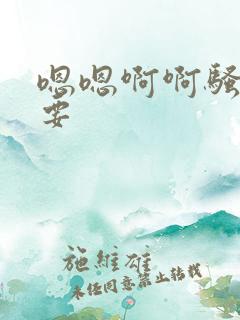 嗯嗯啊啊骚
要
施维雄
未经同意禁止转载